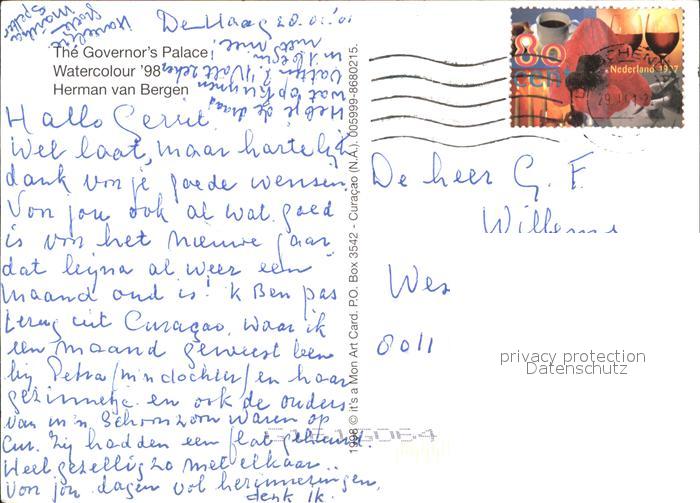 Den Haag 28.01.'01
The Governor's Palace
Watercolour '98
Herman van Bergen
Hallo Gerrit.
Wel laat, maar hartelijk
dank voor je goede wensen.
Voor jou ook al wat goed
is voor het nieuwe jaar
dat bijna al weer een
maand oud is! 'k Ben pas
terug uit Curaçao, waar ik
een maand geweest ben
bij Petra/m'n dochter/en haar
gezinnetje en ook de ouders
van m'n schoonzoon waren op
Cur. Zij hadden een flat gehuurd.
Heel gezellig zo met elkaar..
Voor jou dagen vol herinneringen,
denk ik.
Heb je de draad
wat op kunnen
in 't begin
niet mee!
Hartelijke
groeten
1998 © it's a Mon Art Card. PO. Box 3542 - Curaçao (N.A.). 005999-8680215.
80
cent
Nederland 1997
De heer G. F.
Willems
Wes
8011
privacy protection
Datenschutz